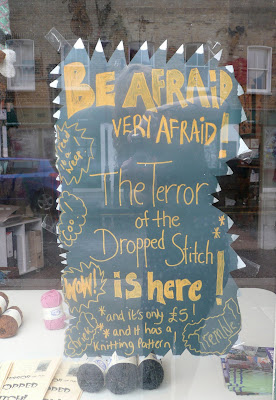 BE AFRAID
VERY AFRAID!
The Terror
of the
Dropped Stitch
is here!
WOW!
*and it's only £5!
*and it has a
Knitting Pattern!
Tremble!
Eek!
OPPED